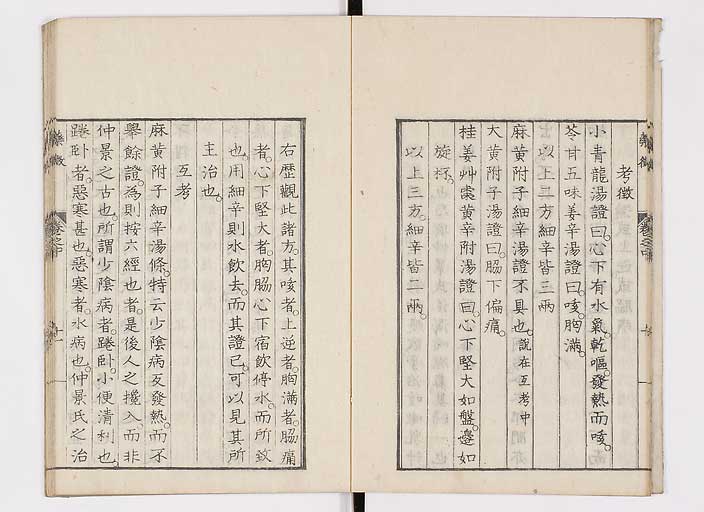 考徵
小青龍湯證曰。心下有水氣。乾嘔。發熱而咳。
苓甘五味姜辛湯證曰。咳。胸滿。
以上二方。細辛皆三兩
麻黃附子細辛湯證不具也。說在互考中
大黃附子湯證曰。脇下偏痛。
桂姜艸棗黃辛附湯證曰。心下堅大如盤。邊如
旋杯。
以上三方。細辛皆二兩。
右歷觀此諸方。其咳者。上逆者。胸滿者。脇痛
者。心下堅大者。胸脇心下宿飲停水。而所致
也。用細辛則水飲去。而其證已。可以見其所
主治也。
互考
麻黃附子細辛湯條。特云少陰病反發熱。而不
舉餘證。為則按六經也者。是後人之攙入而非
仲景之古也。所謂少陰病者。踡臥。小便清利也。
踡臥者。惡寒甚也。惡寒者。水病也。仲景氏之治
藥徵
卷之中
十一